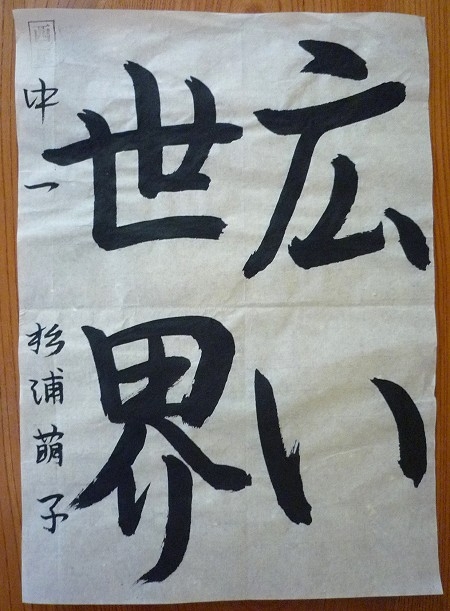 広い
世界
中一 杉浦萌子
酉